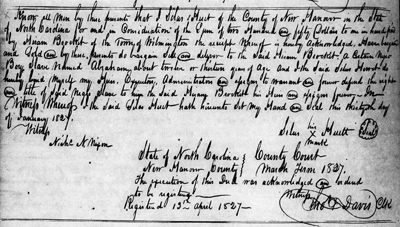 Know all Men by these presents that I Silas Huett of the County of New Hanover in the State
of North Carolina for and in Consideration of the Sum of two Hundred and fifty Dollars to me in hand paid
by Hiram Bowdish of the Town of Wilmington the receipt Whereof is hereby Acknowledged, Have bargained
and Sold and by these presents do bargain Sell and deliver to the Said Hiram Bowdish a Certain Negro
Boy Slave named Abraham, about twelve or thirteen years of Age And I the Said Silas Huett do
hereby bind myself my Heirs Executors, Administrators and assigns to warrant and forever defend the right
and title of Said Negro Slave to him the Said Hiram Bowdish his Heirs and assigns forever. In
Witness Whereof I the Said Silas Huett hath hereunto Set my Hand and Seal this day
of January 1827.
Silas his X mark Huett Seal
Witness
Nichs. N. Nixon
State of North Carolina } County Court
New Hanover County } March Term 1827.
The execution of this Deed was acknowledged and Ordered
to be registered
Witness
Registered 13th April 1827— Thos. F. Davis Clk